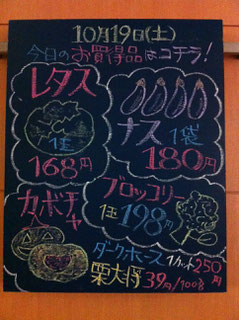 10月19日(土)
今日のお買得品はコチラ!
レタス
1玉
168円
ナス 1袋
180円
カボチャ
ブロッコリー
1玉 198円
ダークホース 1カット250円
栗大将 39円/100g